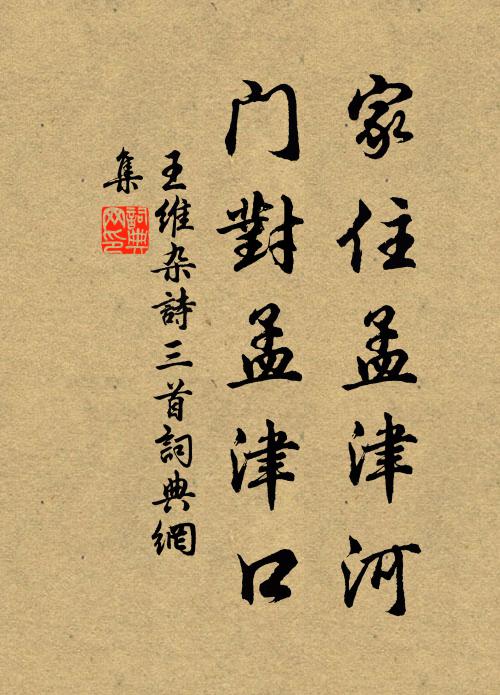 家住孟津河
门對孟津口
王維杂詩三首詞典網
集
詞典网印